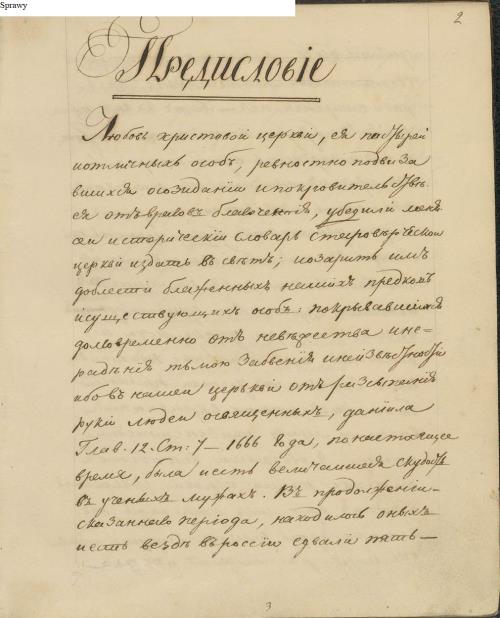 Sprawy
2
Предисловіе
Любовь христовой церкви, ея пастырей
и отличныхъ особъ, ревностно подвиза
вшихся осозиданіи и покровительствѣ
ея отъ враговъ благочестія, убедили меня
сеи историческіи словарь старовѣрческои
церкви издать въ свѣтъ; и озарить имъ
доблести блаженныхъ нашихъ предковъ
и существующихъ особъ: покрывавшихся
долговременно отъ невѣжества и не-
радѣнія тьмою забвенія и неизвѣстности
ибо въ нашеи церькви отъ разсыпанія
руки людеи освященныхъ, даніила
Глав: 12. Ст: 7 – 1666 года, по настоящее
время, была и есть величаишая скудость
въ ученыхъ мужах. Въ продолженіи
сказаннаго періода, находилось оныхъ
и есть вездѣ в россіи едвали пять –
3